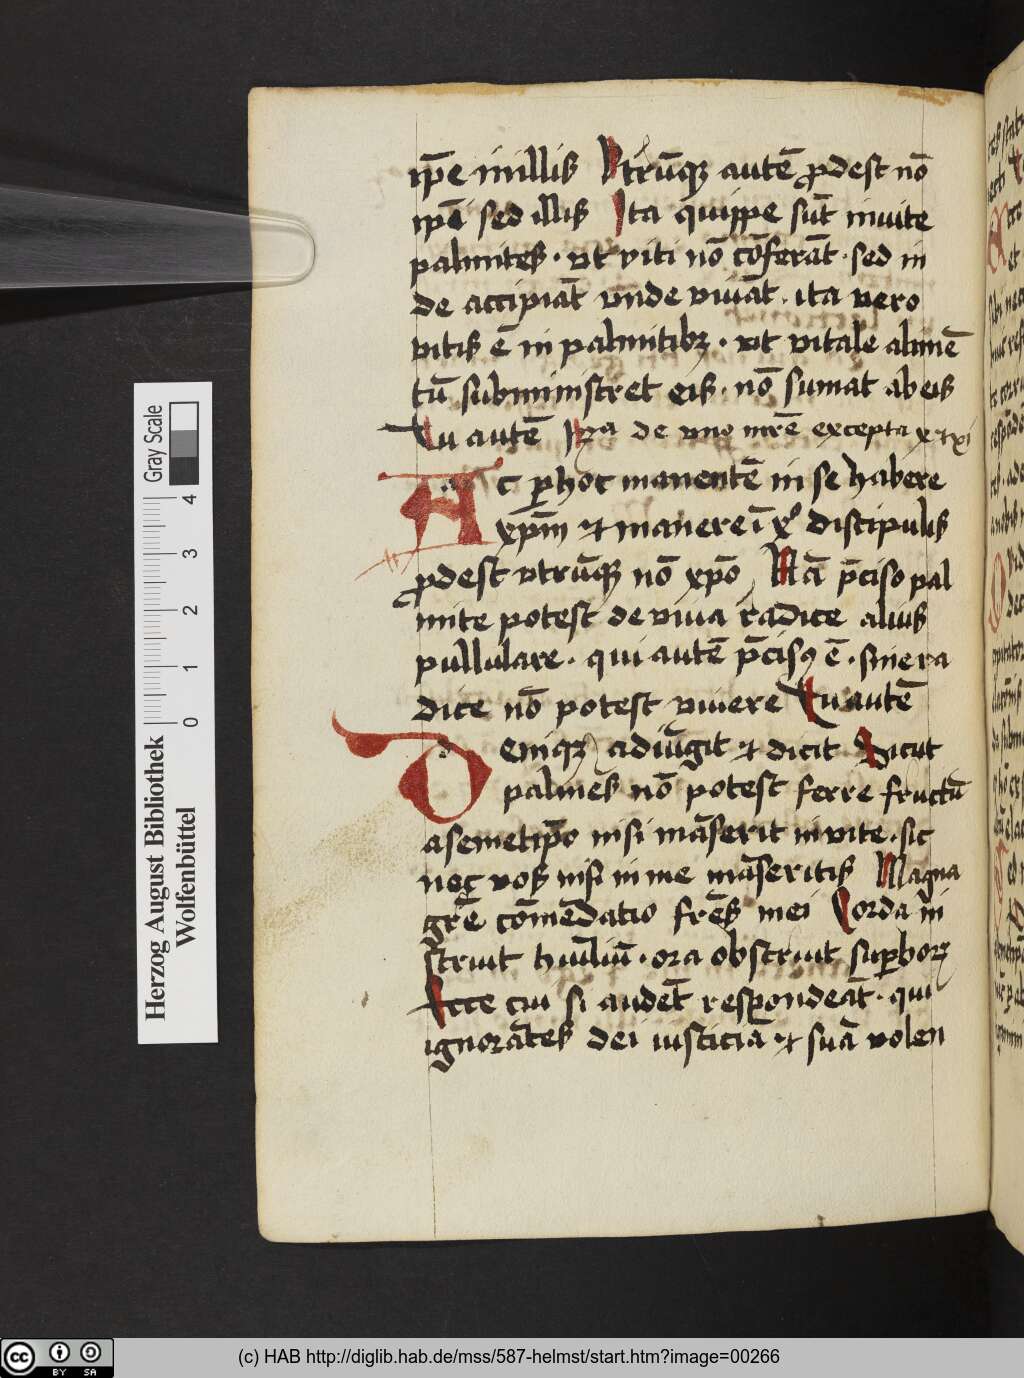 ip̄e in illis Vtrūqꝫ autē ꝓdest nō
ip̄ē sed illis Ita quippe sūt in vite
palmites · vt viti nō cōferāt · sed in
de accipiāt vnde viuāt · ita vero
vitis ē in palmitibꝫ · vt vitale alimē
tū subministret eis · nō sumat ab eis
Tu autē de vno mr̄e excepta
Ac ꝑ hoc manentē in se habere
xp̄m et manere ī xᵒ discipulis
ꝓdest vtrūqꝫ nō xp̄o Nā p̄ciso pal
mite potest de viua radice alius
pullulare · qui autē p̄cisꝰ ē · sine ra
dice nō potest viuere Tu autē
Deniqꝫ adiūgit et dicit Sicut
palmes nō potest ferre fructū
a semetip̄o nisi māserit in vite · sic
nec vos nisi in me māseritis Magna
gr̄e cōmēdatio fr̄es mei Corda in
struit hūiliū · ora obstruit suꝑborꝝ
Ecce cui si audēt respondeāt · qui
ignorātes dei iusticiā et suā volen
Herzog August Bibliothek
Wolfenbüttel
Gray Scale
0 1 2 3 4
cc BY SA
(c) HAB http://diglib.hab.de/mss/587-helmst/start.htm?image=00266